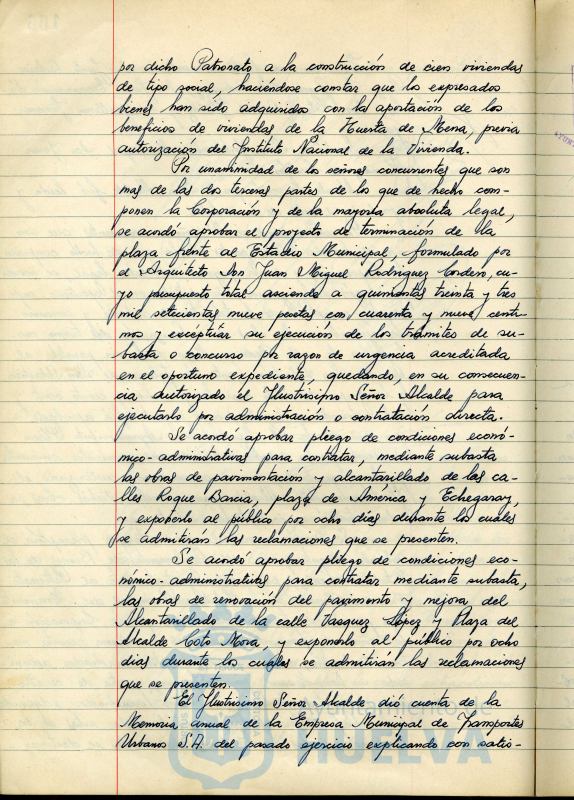 por dicho Patronato a la construcción de cien viviendas
de tipo social, haciéndose constar que los expresados
bienes han sido adquiridos con la aportación de los
beneficios de viviendas de la Huerta de Mena, previa
autorización del Instituto Nacional de la Vivienda.
Por unanimidad de los señores concurrentes que son
mas de las dos terceras partes de los que de hecho com-
ponen la Corporación y de la mayoria absoluta legal,
se acordó aprobar el proyecto de terminación de la
plaza frente al Estadio Municipal, formulado por
el Arquitecto Don Juan Miguel Rodriguez Cordero, cu-
yo presupuesto total asciende a quinientas treinta y tres
mil setecientas nueve pesetas con cuarenta y nueve centi-
mos y exceptuar su ejecución de los tramites de su-
basta o concurso por razon de urgencia acreditada
en el oportuno expediente, quedando, en su consecuen-
cia autorizado el Ilustrisimo Señor Alcalde para
ejecutarlo por administración o contratación directa.
Se acordó aprobar pliego de condiciones econó-
mico-administrativas para contratar, mediante subasta
las obras de pavimentación y alcantarillado de las ca-
lles Roque Barcia, plaza de America y Echegaray,
y exponerlo al público por ocho días durante los cuales
se admitirán las reclamaciones que se presenten.
Se acordó aprobar pliego de condiciones eco-
nómico-administrativas para contratar mediante subasta,
las obras de renovación del pavimento y mejora del
Alcantarillado de la calle Vasquez López y Plaza del
Alcalde Coto Mora, y exponerlo al público por ocho
dias durante los cuales se admitirán las reclamaciones
que se presenten.
El Ilustrisimo Señor Alcalde dió cuenta de la
Memoria anual de la Empresa Municipal de Transportes
Urbanos S.A. del pasado ejercicio explicando con satis-
HUELVA